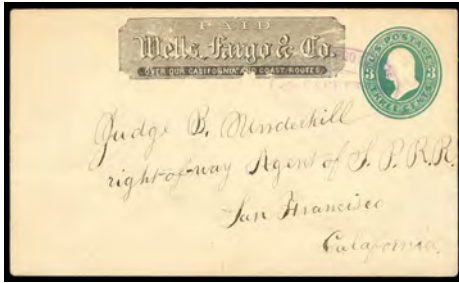 PAID
Wells, Fargo & Co.
OVER OUR CALIFORNIA AND COAST ROUTES
U.S. POSTAGE
3 3
THREE CENTS
Judge B. Underhill
right-of-way Agent of S. P. R. R.
San Francisco
California